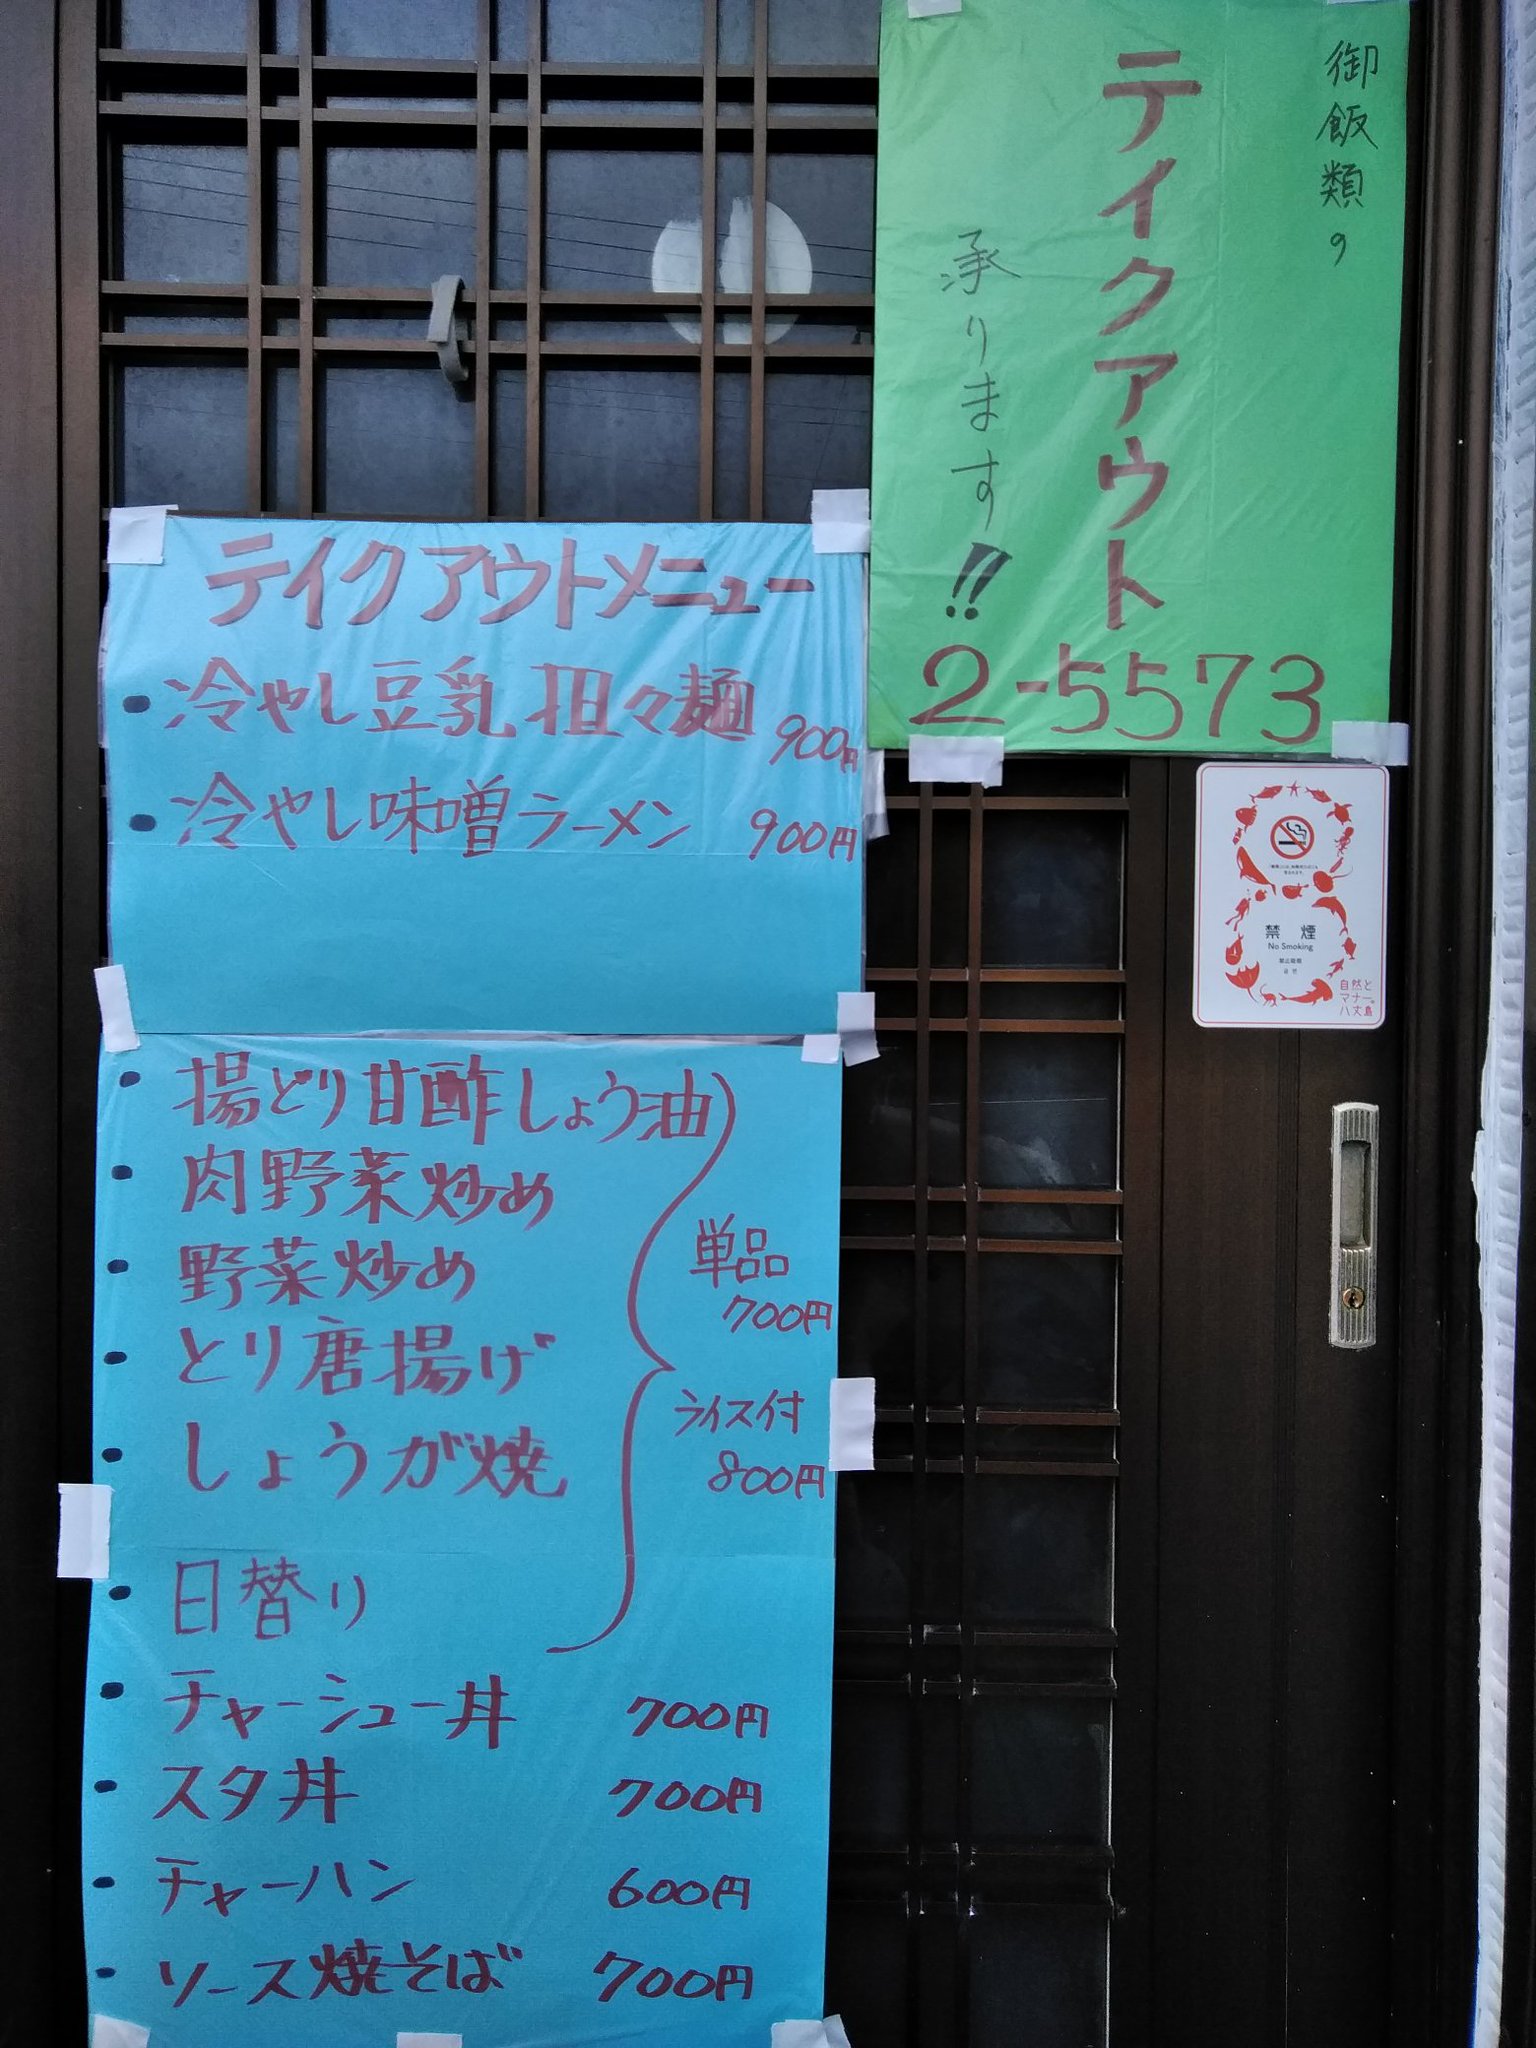 御飯類の
テイクアウト
承ります!!
2-5573
テイクアウトメニュー
• 冷やし豆乳担々麺 900円
• 冷やし味噌ラーメン 900円
• 揚どり甘酢しょう油
• 肉野菜炒め
• 野菜炒め
• とり唐揚げ
• しょうが焼
• 日替り
単品
700円
ライス付
800円
• チャーシュー丼 700円
• スタ丼 700円
• チャーハン 600円
• ソース焼そば 700円
禁煙
No Smoking
禁止吸烟
금연
自然と
マナー。
八丈島